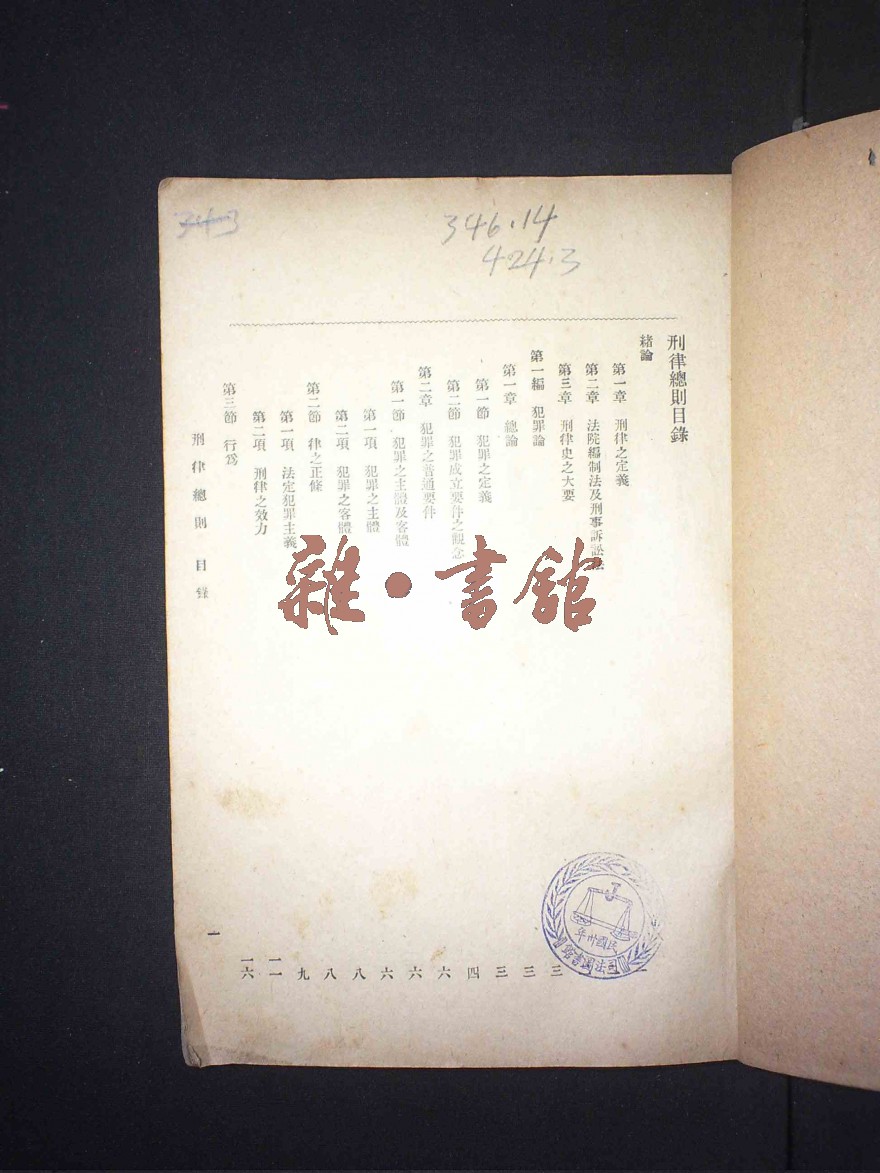 343
346.14
424.3
刑律總則目錄
緒論
第一章 刑律之定義
第二章 法院編制法及刑事訴訟法
第三章 刑律史之大要
第一編 犯罪論 三
第一章 總論 三
第一節 犯罪之定義 三
第二節 犯罪成立要件之觀念 四
第二章 犯罪之普通要件 六
第一節 犯罪之主體及客體 六
第一項 犯罪之主體 六
第二項 犯罪之客體 八
第二節 律之正條 八
第一項 法定犯罪主義 九
第二項 刑律之效力 一一
第三節 行爲 一六
刑律總則 目錄
一
民國卅年
司法圖書館
雜·書館